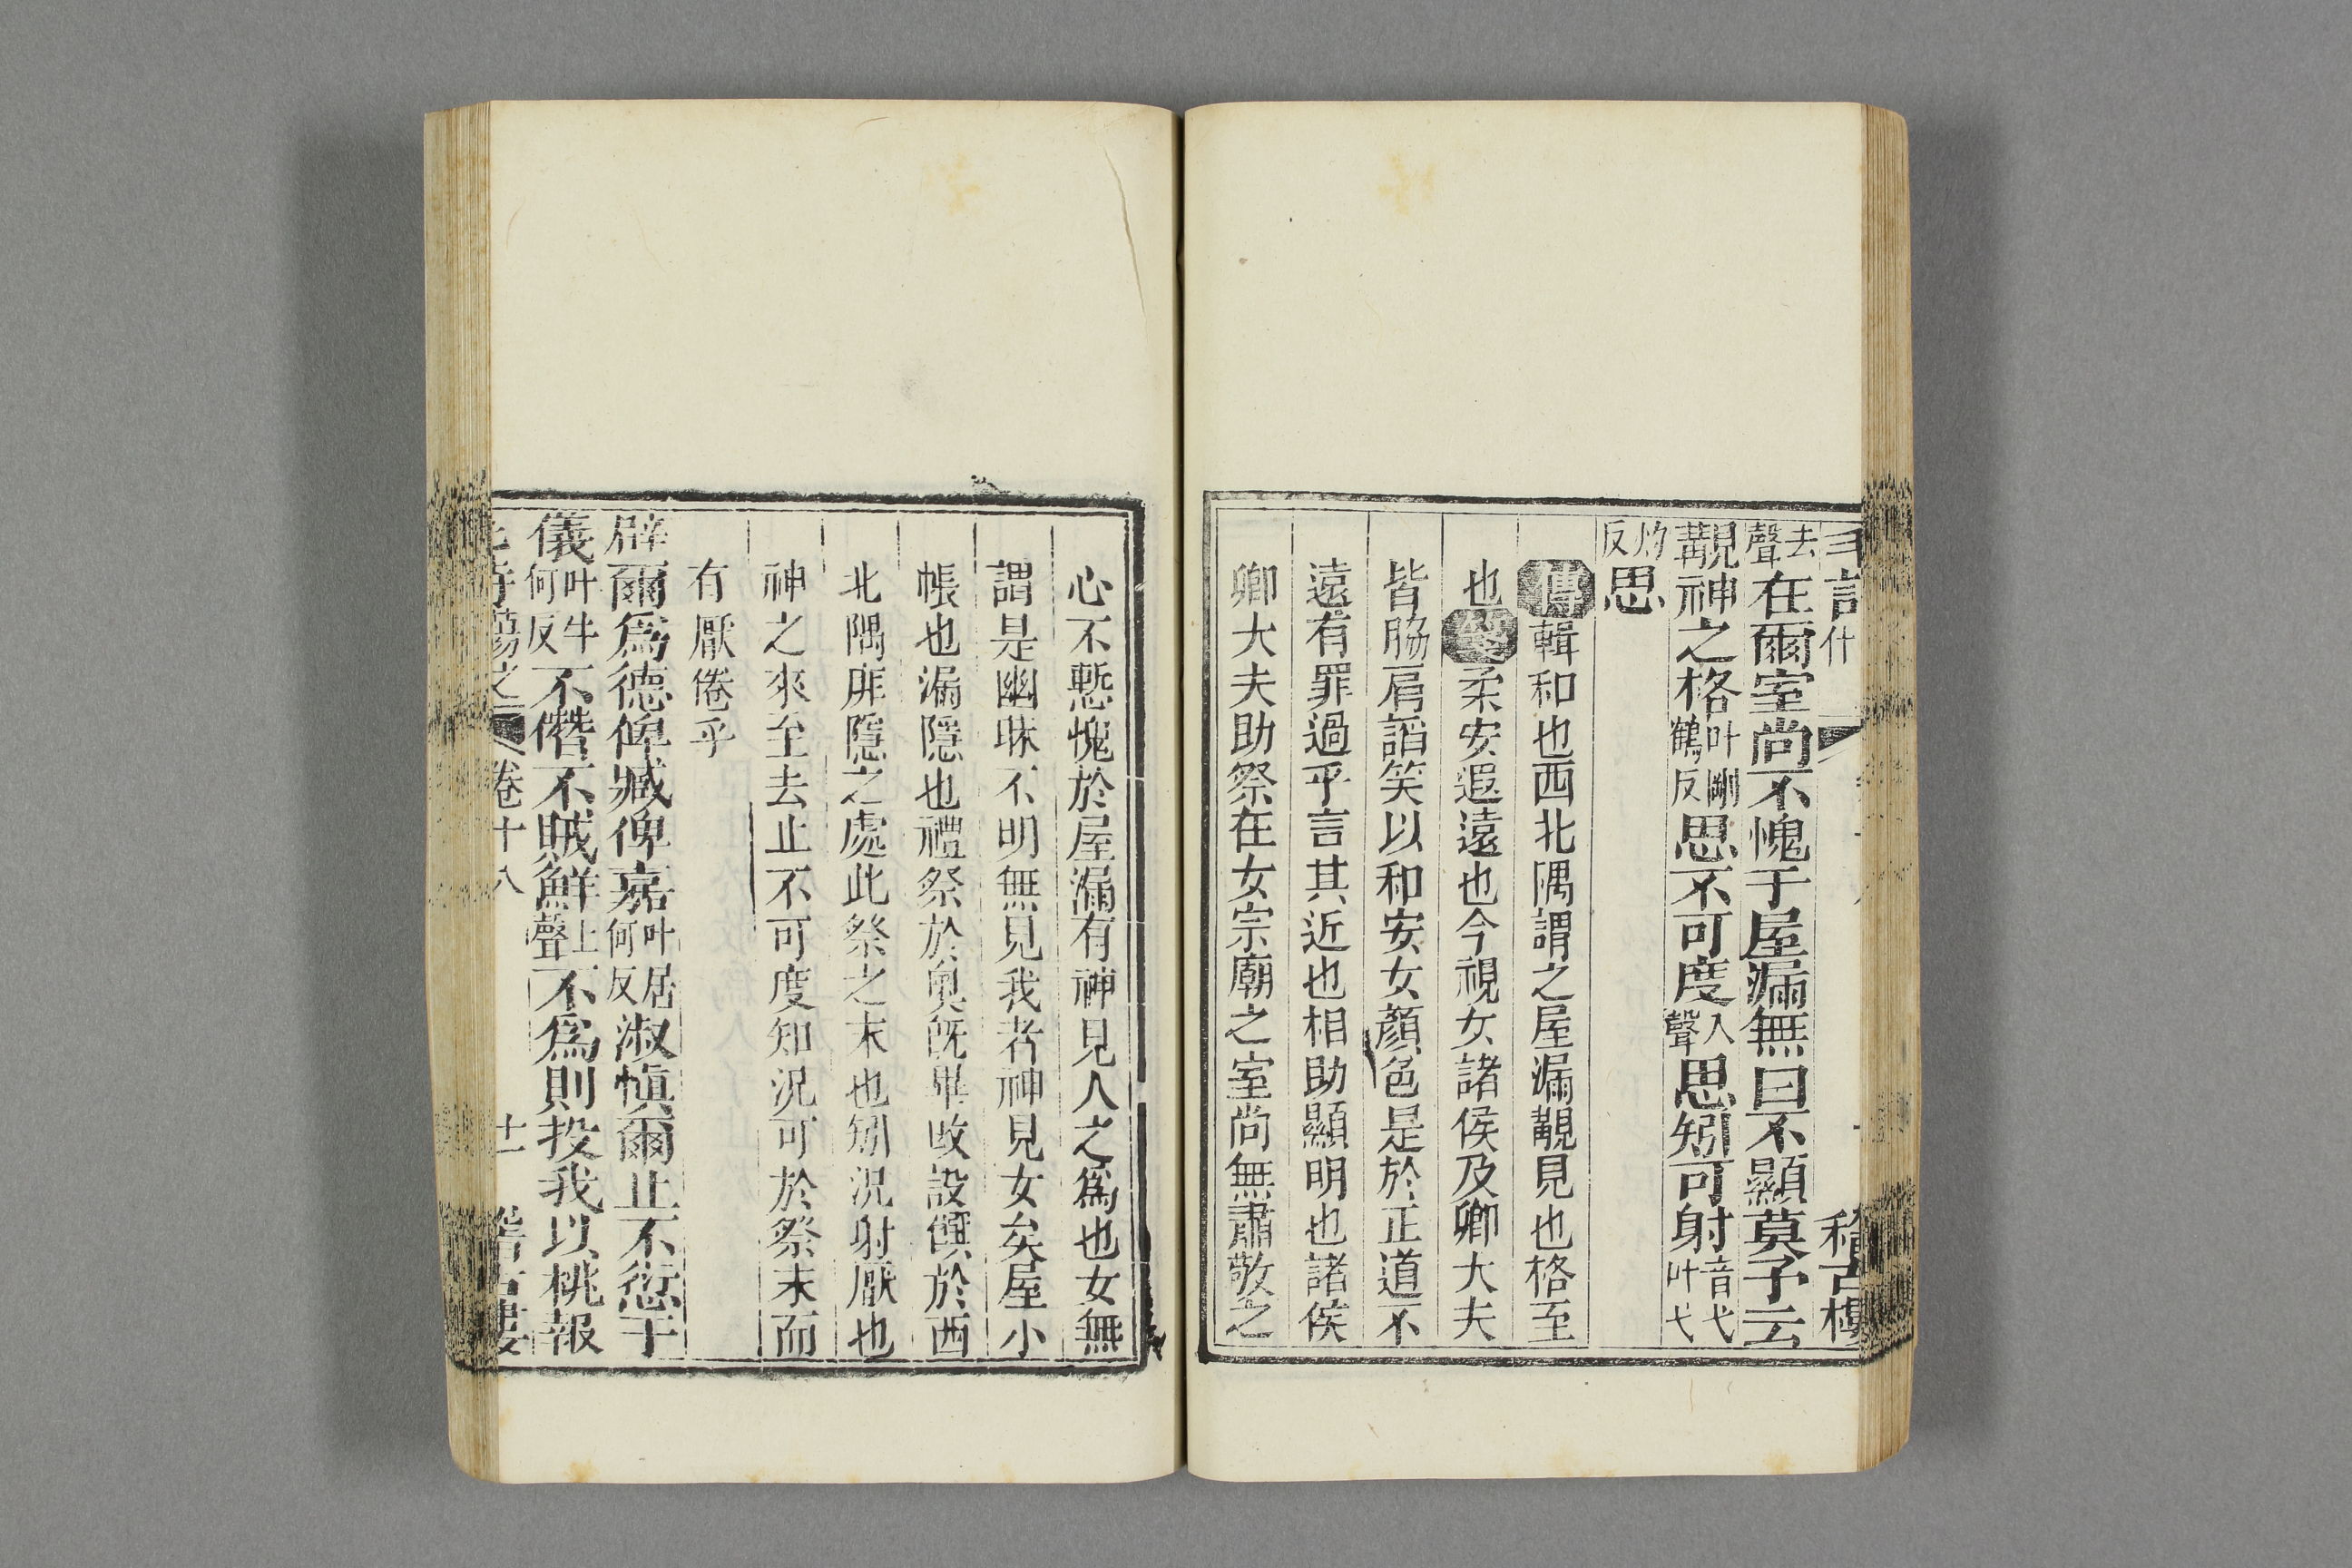 毛詩什
積古樓
去聲在爾室尚不愧于屋漏無曰不顯莫予云
覯神之格叶剛鶴反思不可度入聲思矧可射音弋叶弋
灼反思
傳輯和也西北隅謂之屋漏覯見也格至
也箋柔安遐遠也今視女諸侯及卿大夫
皆脇肩諂笑以和安女顏色是於正道不
遠有罪過乎言其近也相助顯明也諸侯
卿大夫助祭在女宗廟之室尚無肅敬之
心不慙愧於屋漏有神見人之為也女無
謂是幽昧不明無見我者神見女矣屋小
帳也漏隱也禮祭於奧旣畢改設饌於西
北隅厞隱之處此祭之末也矧況射厭也
神之來至去止不可度知況可於祭末而
有厭倦乎
辟爾爲德俾臧俾嘉叶居何反淑愼爾止不愆于
儀叶牛何反不僭不賊鮮上聲不爲則投我以桃報
蕩之 卷十八 十一